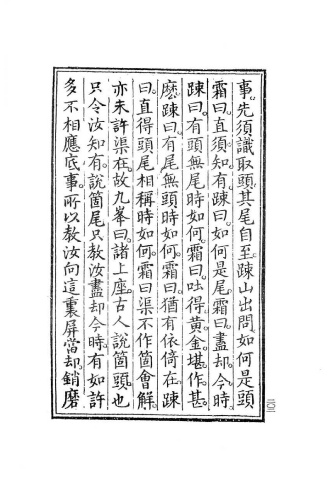 事先須識取頭其尾自至疎山出問如何是頭
霜曰直須知有疎曰如何是尾霜曰盡却今時
疎曰有頭無尾時如何霜曰吐得黃金堪作甚
麽疎曰有尾無頭時如何霜曰猶有依倚在疎
曰直得頭尾相稱時如何霜曰渠不作箇會解
亦未許渠在故九峯曰諸上座古人說箇頭也
只令汝知有說箇尾只教汝盡却今時有如許
多不相應底事所以教汝向這裏屏當却銷磨
二〇二